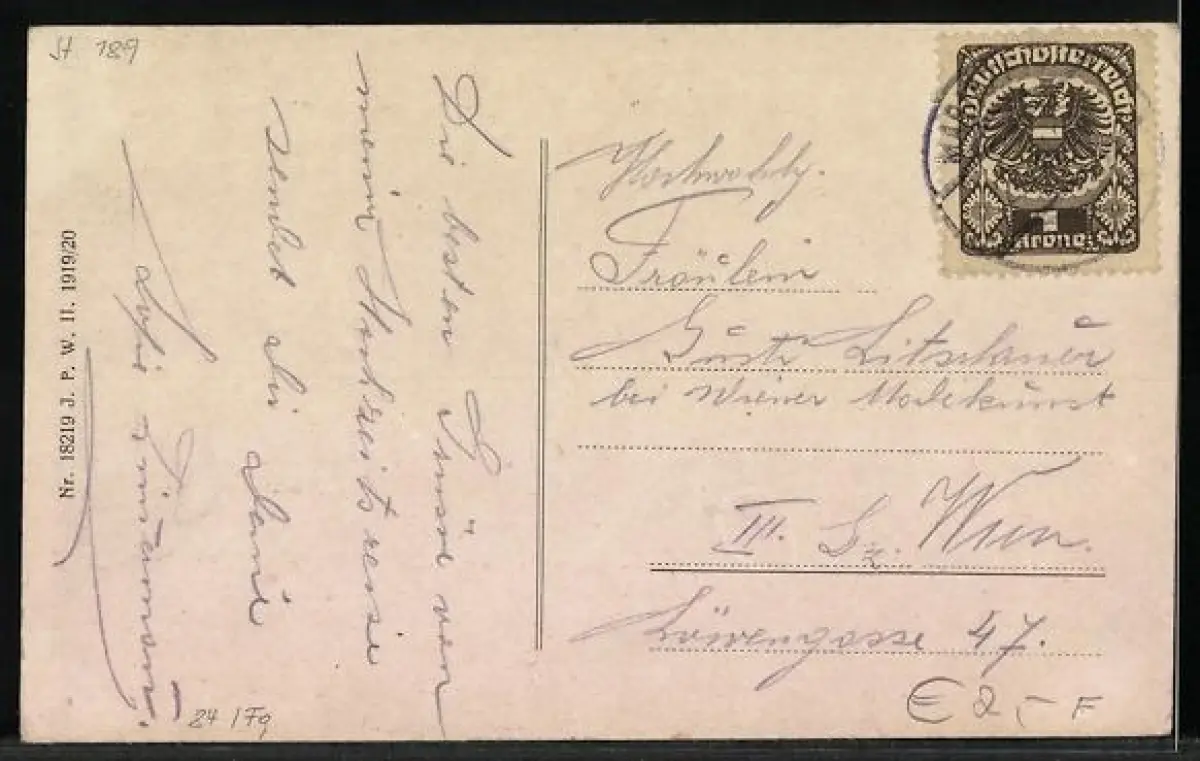 St 189
Die besten Grüße von
meiner Hochzeitsreise
sendet dir deine
Nr. 18219 J. P. W. II. 1919/20
84 / Fg
Deutschösterreich
1
Krone
Hochwohlg.
Fräulein
Gusti Litschauer
bei Wiener Modekunst
III. Bz. Wien.
Löwengasse 47.
€ 2,- F